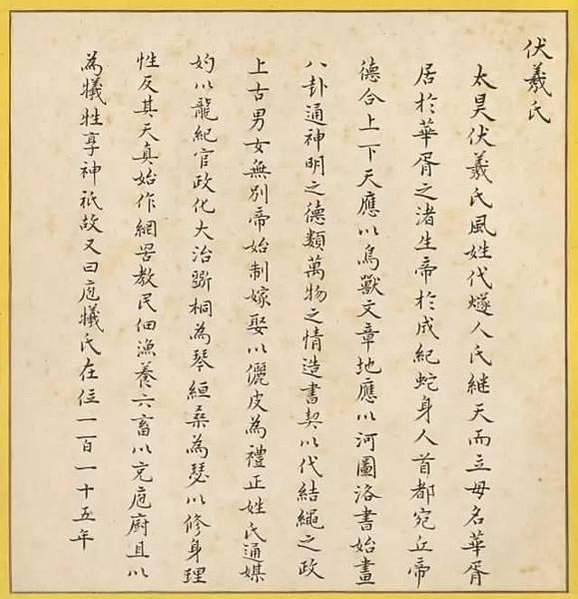 伏羲氏
太昊伏羲氏風姓代燧人氏継天而立母名華胥
居於華胥之渚生帝於成紀蛇身人首都宛丘帝
德合上下天應以鳥獸文章地應以河圖洛書始畫
八卦通神明之德類萬物之情造書契以代結繩之政
上古男女無別帝始制嫁娶以儷皮為禮正姓氏通媒
妁以龍紀官政化大治斲桐為琴絙桑為瑟以修身理
性反其天真始作網罟教民佃漁養六畜以充庖廚且以
為犧牲享神祇故又曰庖犧氏在位一百一十五年